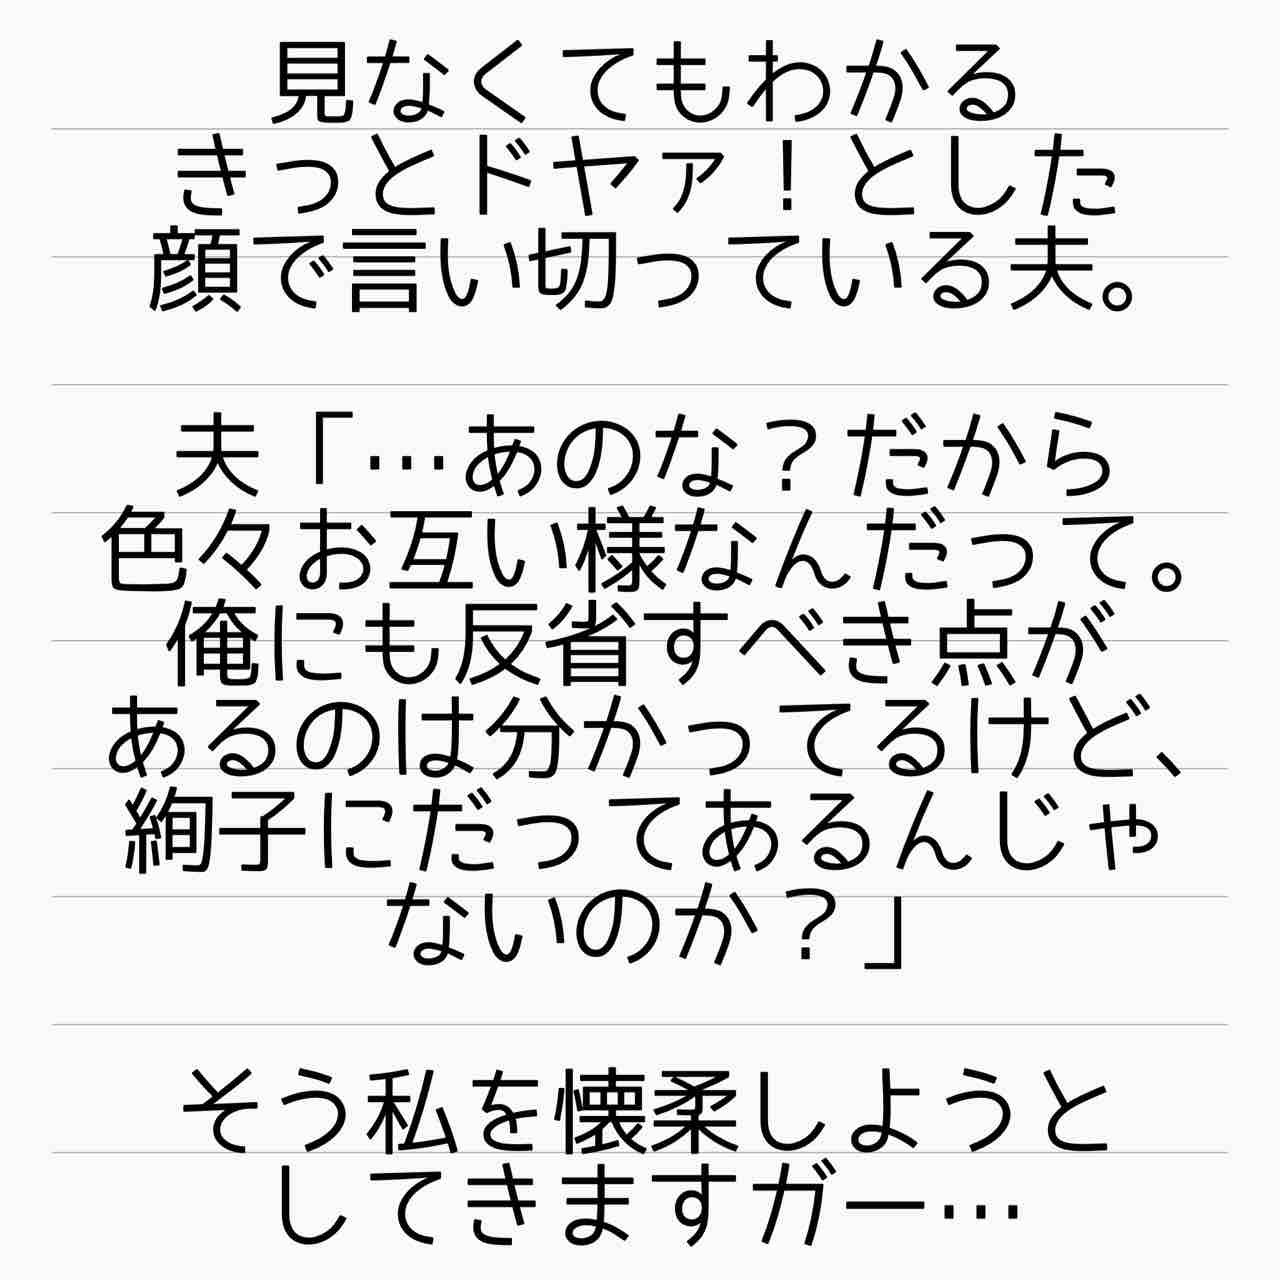 見なくてもわかる
きっとドヤァ！とした
顔で言い切っている夫。
夫「…あのな？だから
色々お互い様なんだって。
俺にも反省すべき点が
あるのは分かってるけど、
絢子にだってあるんじゃ
ないのか？」
そう私を懐柔しようと
してきますガー…